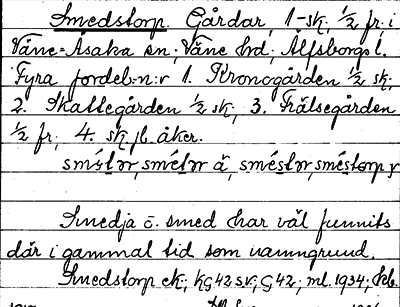 Smedstorp. Gårdar, 1 sk, 1/2 fr. i
Väne-Åsaka sn; Väne hd, Älfsborgs l.
Fyra fordel.n:r 1. Kronogården 1/2 sk,
2. Skattegården 1/2 sk, 3. Frälsegården
1/2 fr, 4. sk jl. åker.
Smedja o. smed har väl funnits
där i gammal tid som namngrund.
Smedstorp ek; kg 42 sv, G 42; ml. 1934;